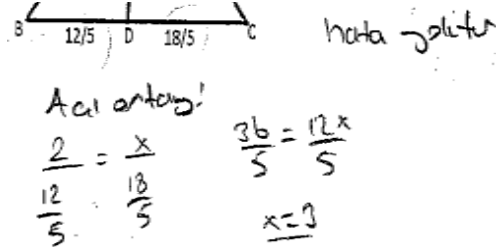 B 12/5 D 18/5 C
hata yoktur
Acı ortay!
2/(12/5) = x/(18/5)
36/5 = 12x/5
x=3